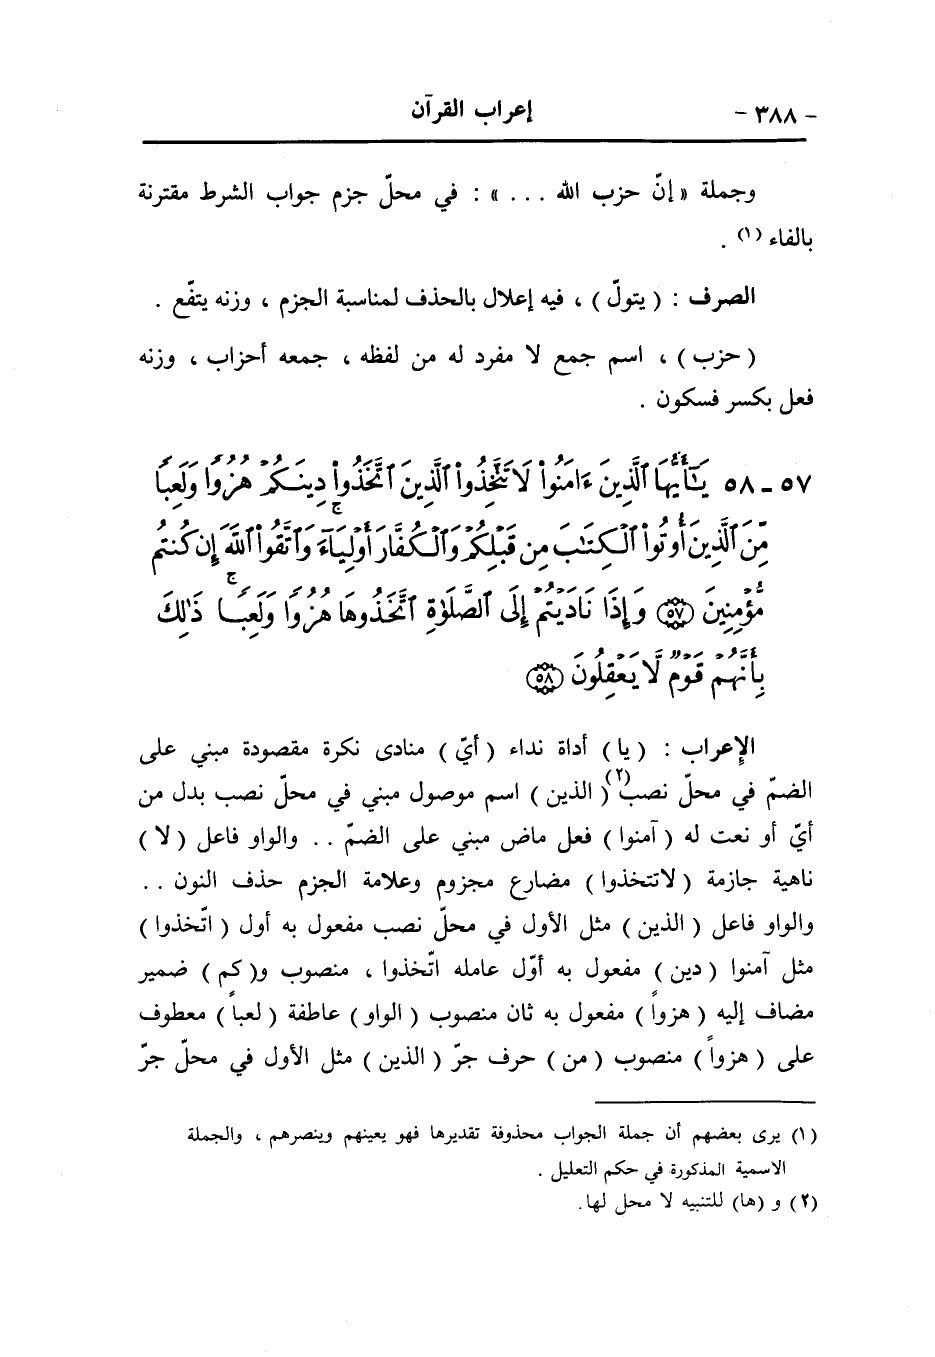 - ٣٨٨ - إعراب القرآن
وجملة « إنّ حزب الله . . . » : في محلّ جزم جواب الشرط مقترنة
بالفاء (١) .
الصرف : ( يتولّ ) ، فيه إعلال بالحذف لمناسبة الجزم ، وزنه يتفّع .
( حزب ) ، اسم جمع لا مفرد له من لفظه ، جمعه أحزاب ، وزنه
فعل بكسر فسكون .
٥٧ - ٥٨ يَٰٓأَيُّهَا ٱلَّذِينَ ءَامَنُوا۟ لَا تَتَّخِذُوا۟ ٱلَّذِينَ ٱتَّخَذُوا۟ دِينَكُمْ هُزُوًا وَلَعِبًا
مِّنَ ٱلَّذِينَ أُوتُوا۟ ٱلْكِتَٰبَ مِن قَبْلِكُمْ وَٱلْكُفَّارَ أَوْلِيَآءَ ۚ وَٱتَّقُوا۟ ٱللَّهَ إِن كُنتُم
مُّؤْمِنِينَ ﴿٥٧﴾ وَإِذَا نَادَيْتُمْ إِلَى ٱلصَّلَوٰةِ ٱتَّخَذُوهَا هُزُوًا وَلَعِبًا ۚ ذَٰلِكَ
بِأَنَّهُمْ قَوْمٌ لَّا يَعْقِلُونَ ﴿٥٨﴾
الإعراب : ( يا ) أداة نداء ( أيّ ) منادى نكرة مقصودة مبني على
الضمّ في محلّ نصب(٢) ( الذين ) اسم موصول مبني في محلّ نصب بدل من
أيّ أو نعت له ( آمنوا ) فعل ماض مبني على الضمّ . . والواو فاعل ( لا )
ناهية جازمة ( لاتتخذوا ) مضارع مجزوم وعلامة الجزم حذف النون . .
والواو فاعل ( الذين ) مثل الأول في محلّ نصب مفعول به أول ( اتّخذوا )
مثل آمنوا ( دين ) مفعول به أوّل عامله اتّخذوا ، منصوب و( كم ) ضمير
مضاف إليه ( هزواً ) مفعول به ثان منصوب ( الواو ) عاطفة ( لعباً ) معطوف
على ( هزواً ) منصوب ( من ) حرف جرّ ( الذين ) مثل الأول في محلّ جرّ
(١) يرى بعضهم أن جملة الجواب محذوفة تقديرها فهو يعينهم وينصرهم ، والجملة
الاسمية المذكورة في حكم التعليل .
(٢) و (ها) للتنبيه لا محل لها.